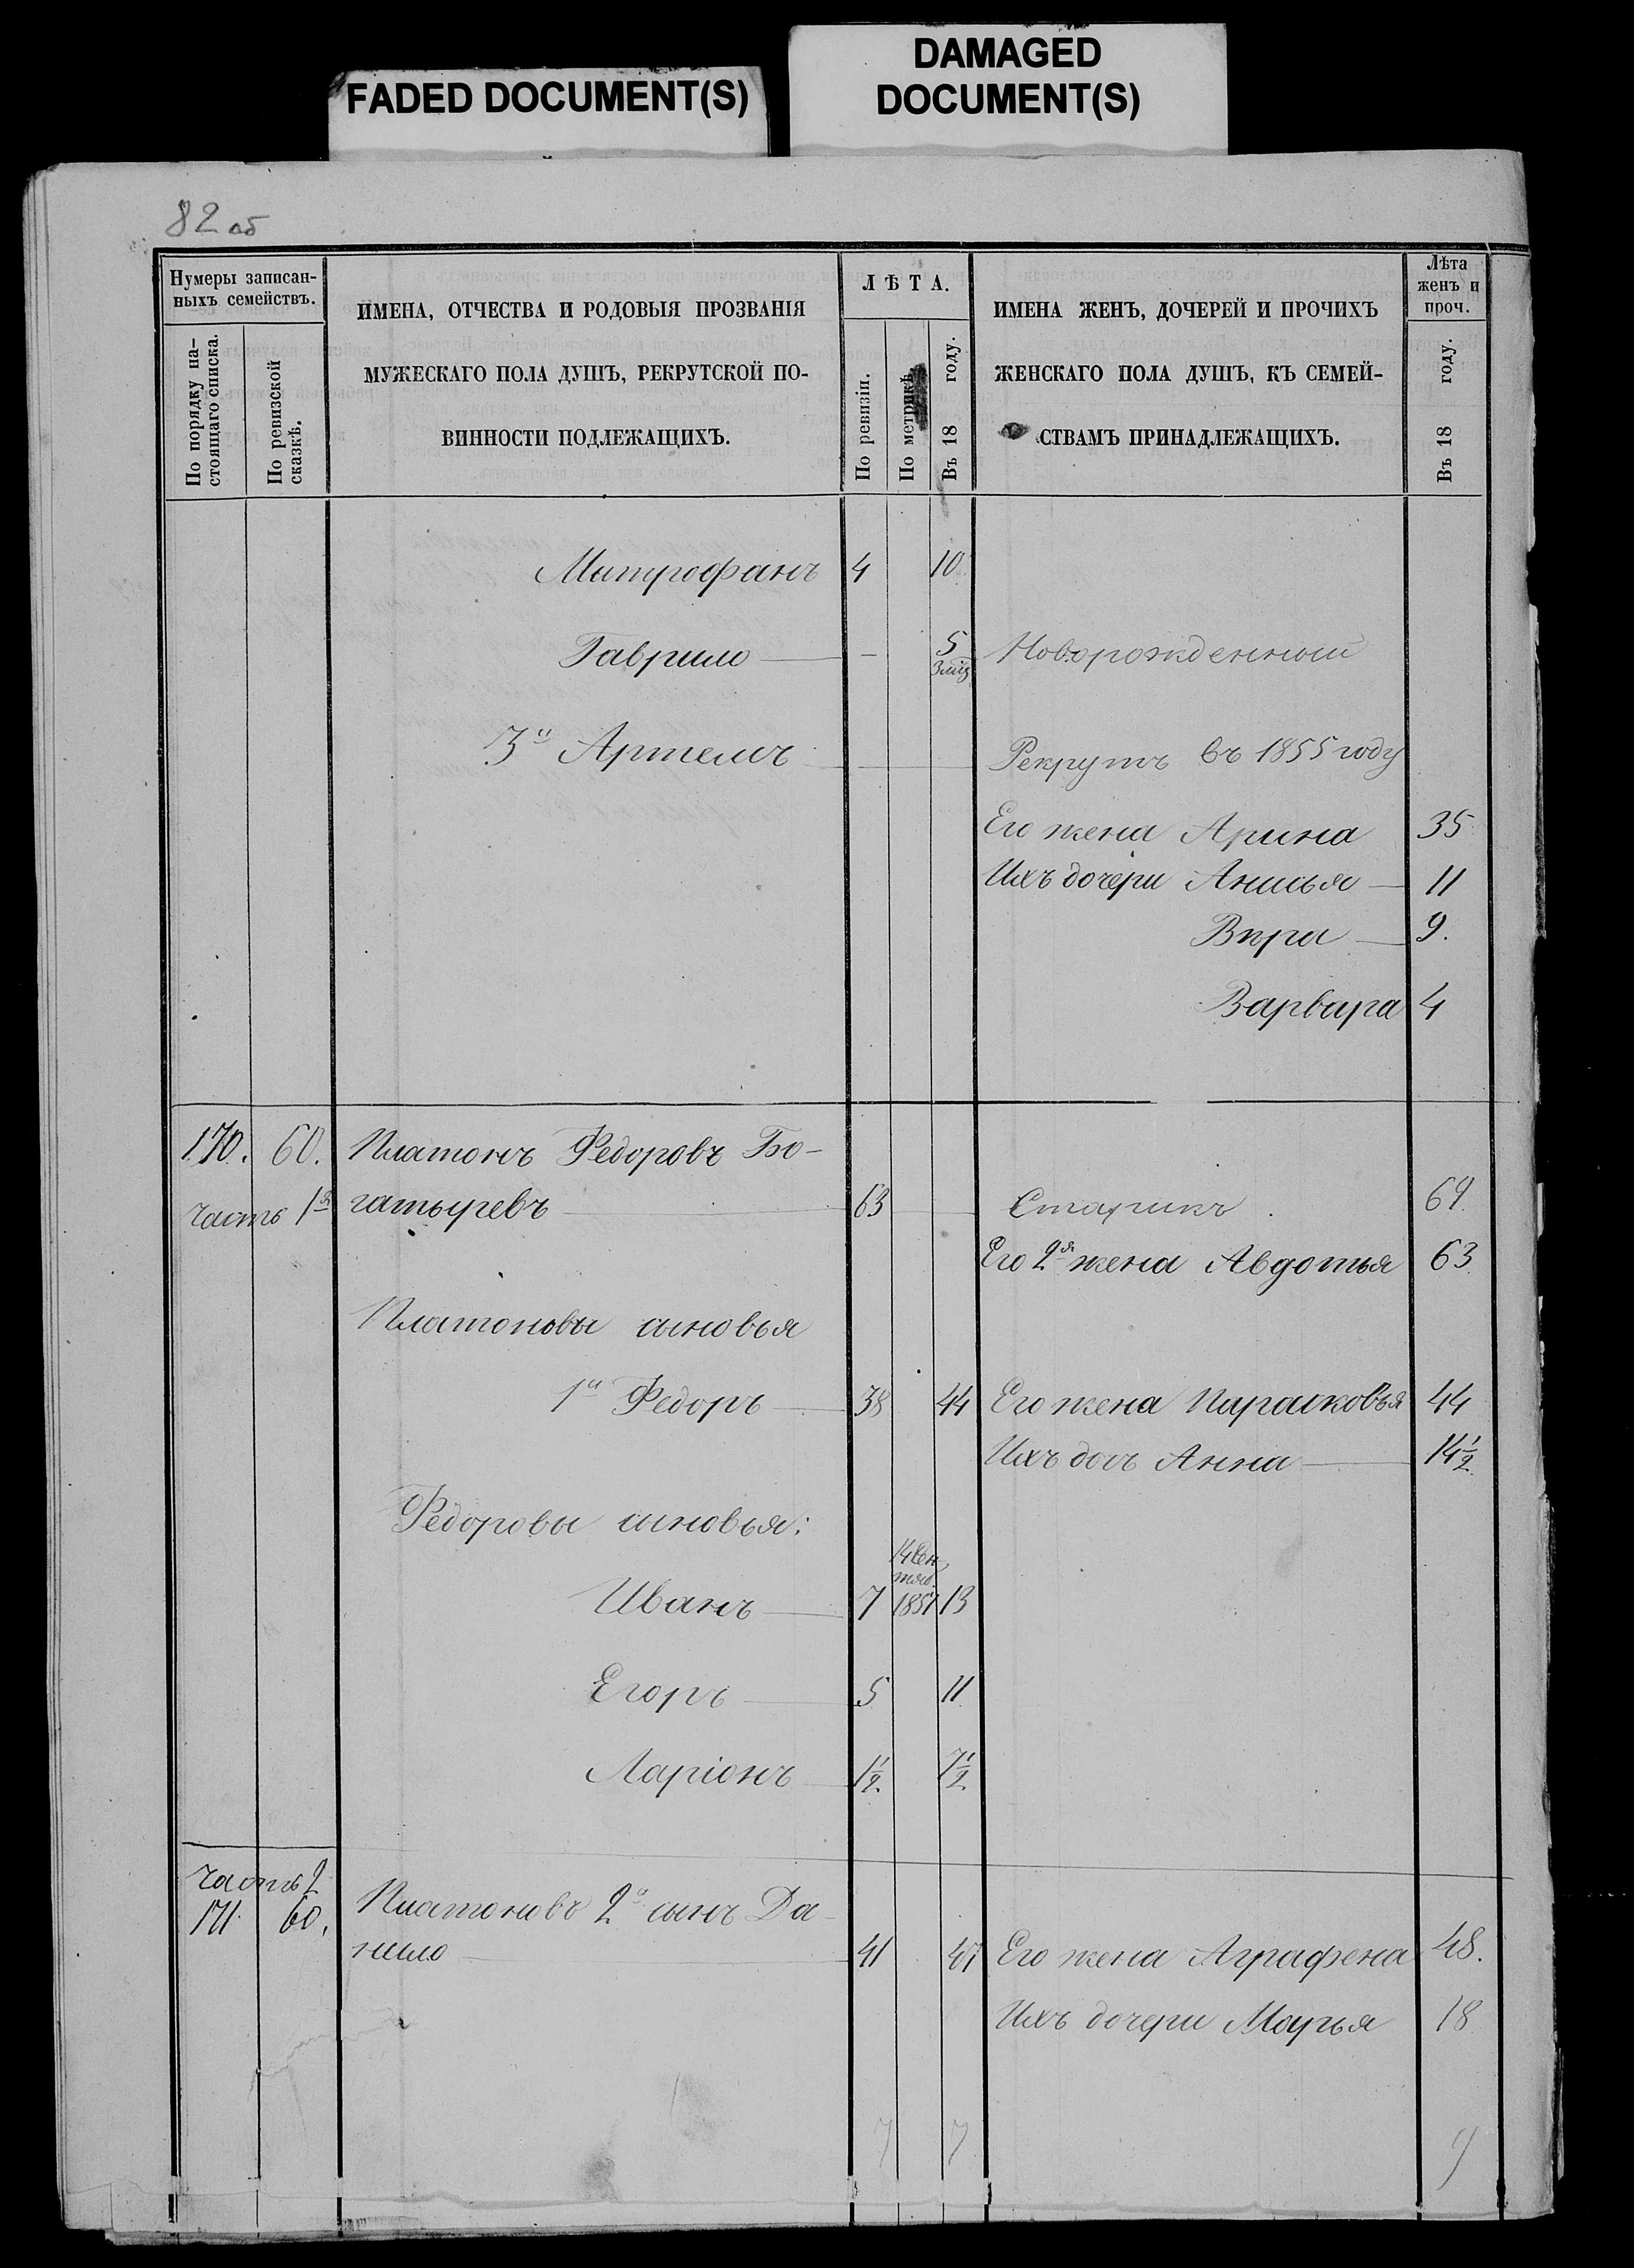 FADED DOCUMENT(S)
DAMAGED
DOCUMENT(S)
82 об
Нумеры записан-
ныхъ семействъ.
По порядку на-
стоящаго списка.
По ревизской
сказкѣ.
ИМЕНА, ОТЧЕСТВА И РОДОВЫЯ ПРОЗВАНІЯ
МУЖЕСКАГО ПОЛА ДУШЪ, РЕКРУТСКОЙ ПО-
ВИННОСТИ ПОДЛЕЖАЩИХЪ.
ЛѢТА.
По ревизіи.
По метрикѣ
Въ 18 году.
ИМЕНА ЖЕНЪ, ДОЧЕРЕЙ И ПРОЧИХЪ
ЖЕНСКАГО ПОЛА ДУШЪ, КЪ СЕМЕЙ-
СТВАМЪ ПРИНАДЛЕЖАЩИХЪ.
Лѣта
женъ и
проч.
Въ 18 году.
Митрофанъ 4 10
Гаврило — — 5 Новорожденный
3 мѣс
3й Артемъ — Рекрутъ въ 1855 году
Его жена Арина 35
Ихъ дочери Анисья — 11
Вѣра — 9.
Варвара 4
170. 60. Платонъ Федоровъ Бо-
часть 1я гатыревъ — 63 Старикъ. 69
Его 2я жена Авдотья 63
Платоновы сыновья
1й Федоръ — 38 44 Его жена Парасковья 44
Ихъ дочь Анна — 14½
Федоровы сыновья:
14 Сен
тяб.
Иванъ — 7 1851 13
Егоръ — 5 11
Ларіонъ — 1½ 7½
Часть 2
171. 60. Платоновъ 2й сынъ Да-
нило — 41 47 Его жена Аграфена 48.
Ихъ дочери Марья 18
7 7 9